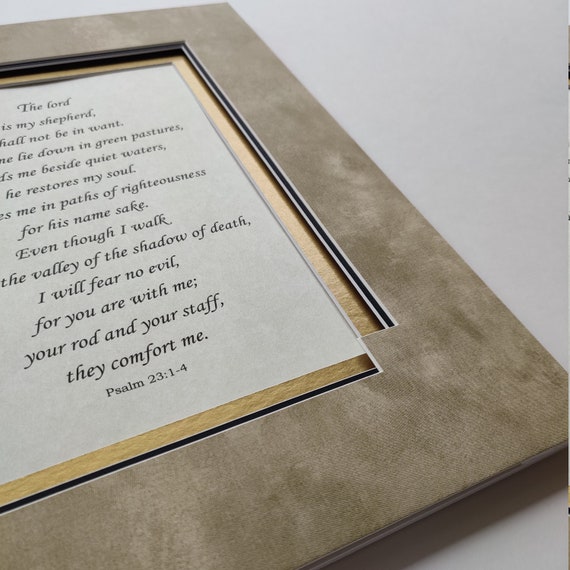 The lord
is my shepherd,
hall not be in want.
me lie down in green pastures,
ds me beside quiet waters,
he restores my soul.
es me in paths of righteousness
for his name sake.
Even though I walk
the valley of the shadow of death,
I will fear no evil,
for you are with me;
your rod and your staff,
they comfort me.
Psalm 23:1-4